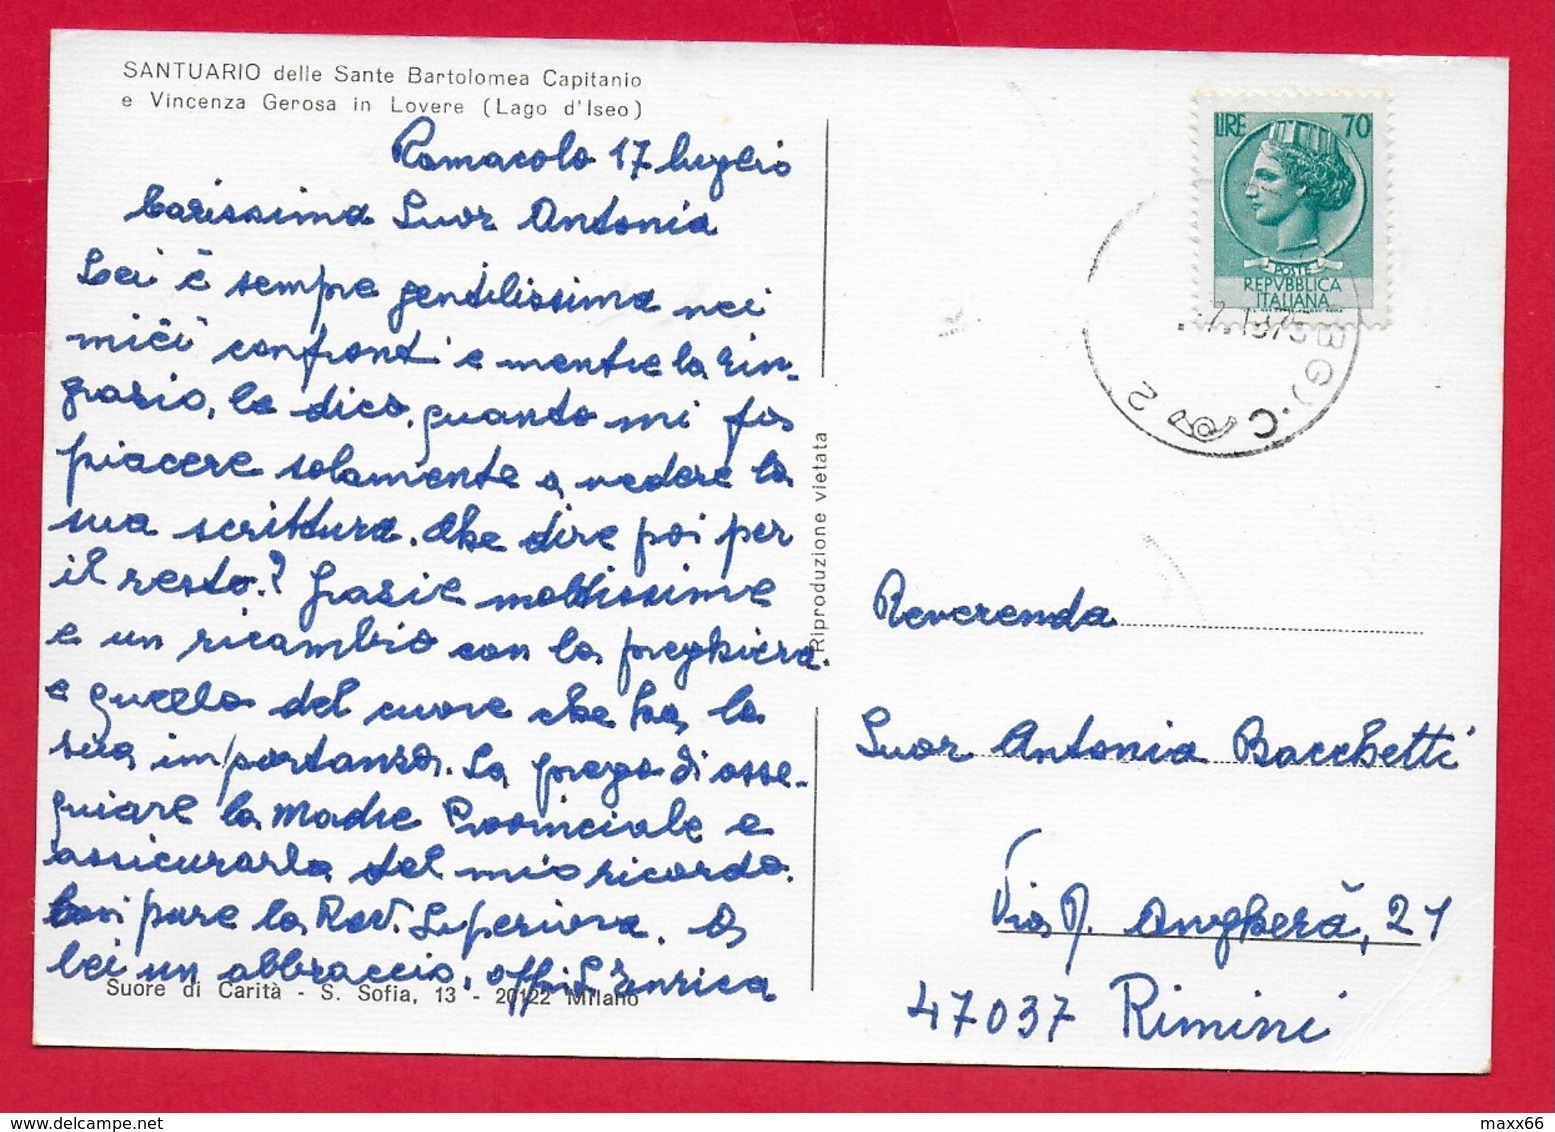 SANTUARIO delle Sante Bartolomea Capitanio
e Vincenza Gerosa in Lovere (Lago d'Iseo)
Ramacolo 17 luglio
Carissima Suor Antonia
Lei è sempre gentilissima nei
miei confronti e mentre la rin-
grazio, le dico, quanto mi fa
piacere solamente a vedere la
sua scrittura. Che dire poi per
il resto? Grazie moltissime
e un ricambio con la preghiera.
e quello del cuore che ha la
sua importanza. La prego di osse-
quiare la Madre Provinciale e
assicurarla del mio ricordo.
Così pure la Rev. Superiora. A
Lei un abbraccio, Enrica
Suore di Carità - S. Sofia, 13 - 20122 Milano
Riproduzione vietata
LIRE 70
POSTE
REPVBBLICA
ITALIANA
1975
BG) · C
2
Reverenda
Suor Antonia Bacchetti
Via D. Angherà, 21
47037 Rimini
maxx66